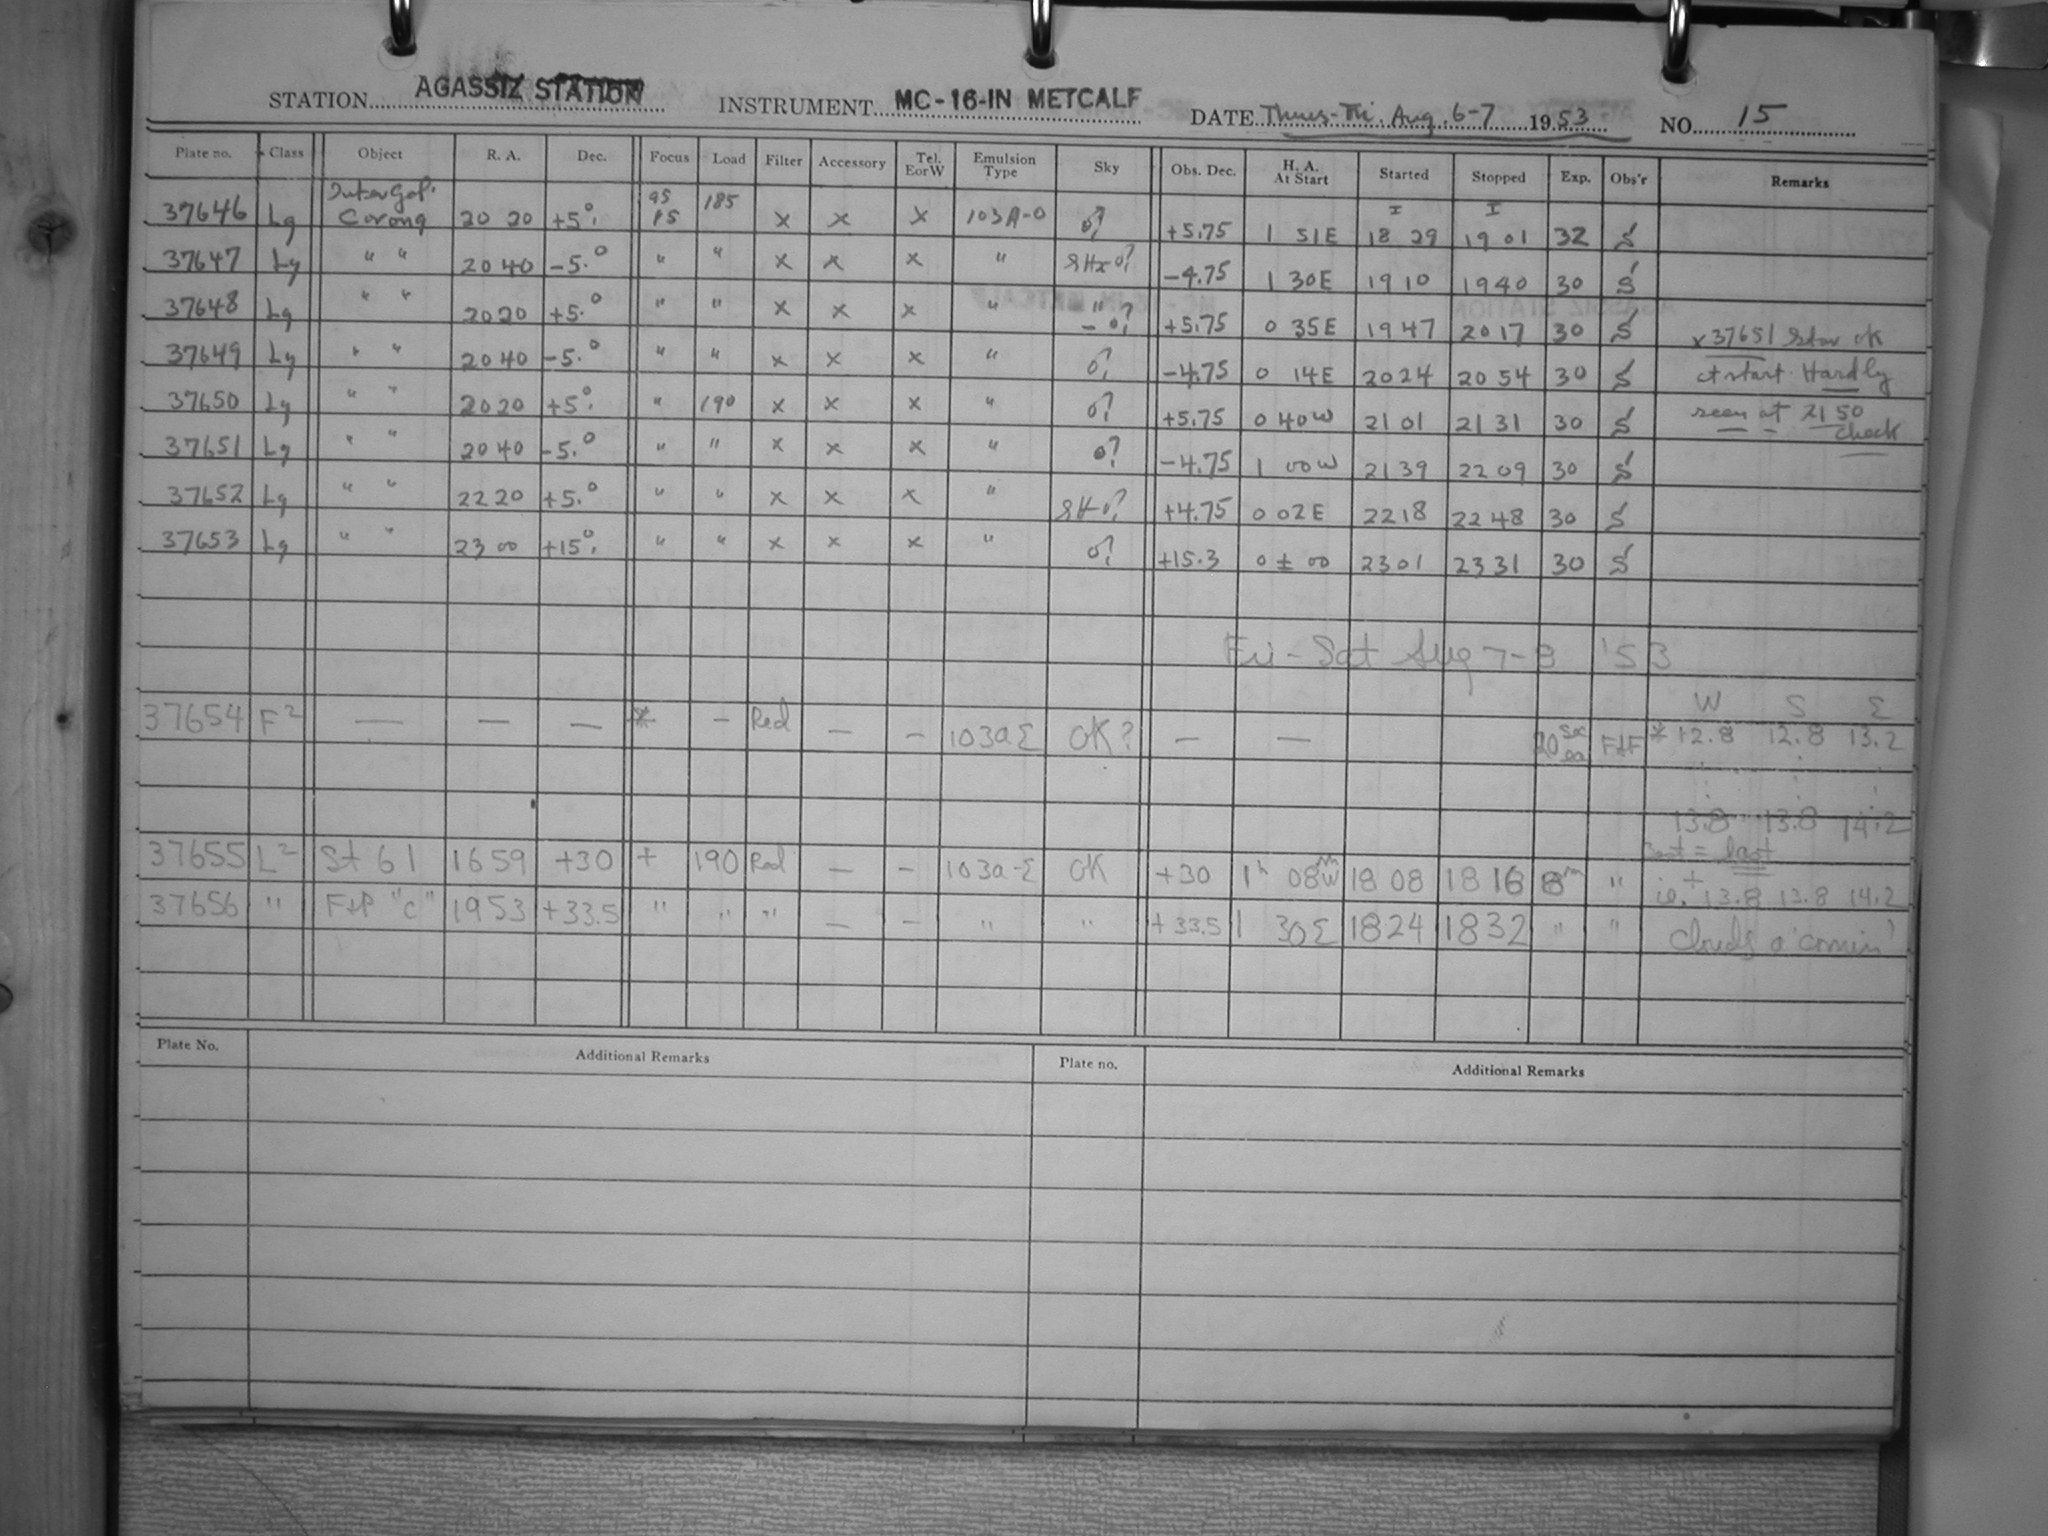 STATION AGASSIZ STATION INSTRUMENT MC-16-IN METCALF DATE Thurs-Fri. Aug. 6-7 1953 NO. 15
Plate no. Class Object R. A. Dec. Focus Load Filter Accessory Tel. EorW Emulsion Type Sky Obs. Dec. H. A. At Start Started Stopped Exp. Obs'r Remarks
37646 Lg InterGal. Corong 20 20 +5°. 95 15 185 x x x 103A-O σ? +5.75 1 51E 18 29 19 01 32 S
37647 Lg " " 20 40 -5.° " " x x x " σ? -4.75 1 30E 19 10 19 40 30 S
37648 Lg " " 20 20 +5.° " " x x x " " - σ? +5.75 0 35E 19 47 20 17 30 S x 37651 Star ok
37649 Lg " " 20 40 -5.° " " x x x " σ? -4.75 0 14E 20 24 20 54 30 S at start. Hardly
37650 Lg " " 20 20 +5°. " 190 x x x " σ? +5.75 0 40W 21 01 21 31 30 S seen at 21 50
check
37651 Lg " " 20 40 -5.° " " x x x " σ? -4.75 1 00W 21 39 22 09 30 S
37652 Lg " " 22 20 +5.° " " x x x " σ? +4.75 0 02E 22 18 22 48 30 S
37653 Lg " " 23 00 +15°. " " x x x " σ? +15.3 0 ± 00 23 01 23 31 30 S
Fri - Sat Aug 7-8 '53
W S Σ
37654 F2 — — — * — Red — — 103aΣ OK? — — 20 sec ea F+F * 12.8 12.8 13.2
13.8 13.8 14.2
= last
37655 L2 St 61 16 59 +30 + 190 Red — — 103a-Σ OK +30 1h 08mW 18 08 18 16 8m " ie. + 13.8 13.8 14.2
37656 " F+P "c" 19 53 +33.5 " " " — — " " +33.5 1 30Σ 18 24 18 32 " " Clouds a'comin'
Plate No. Additional Remarks Plate no. Additional Remarks